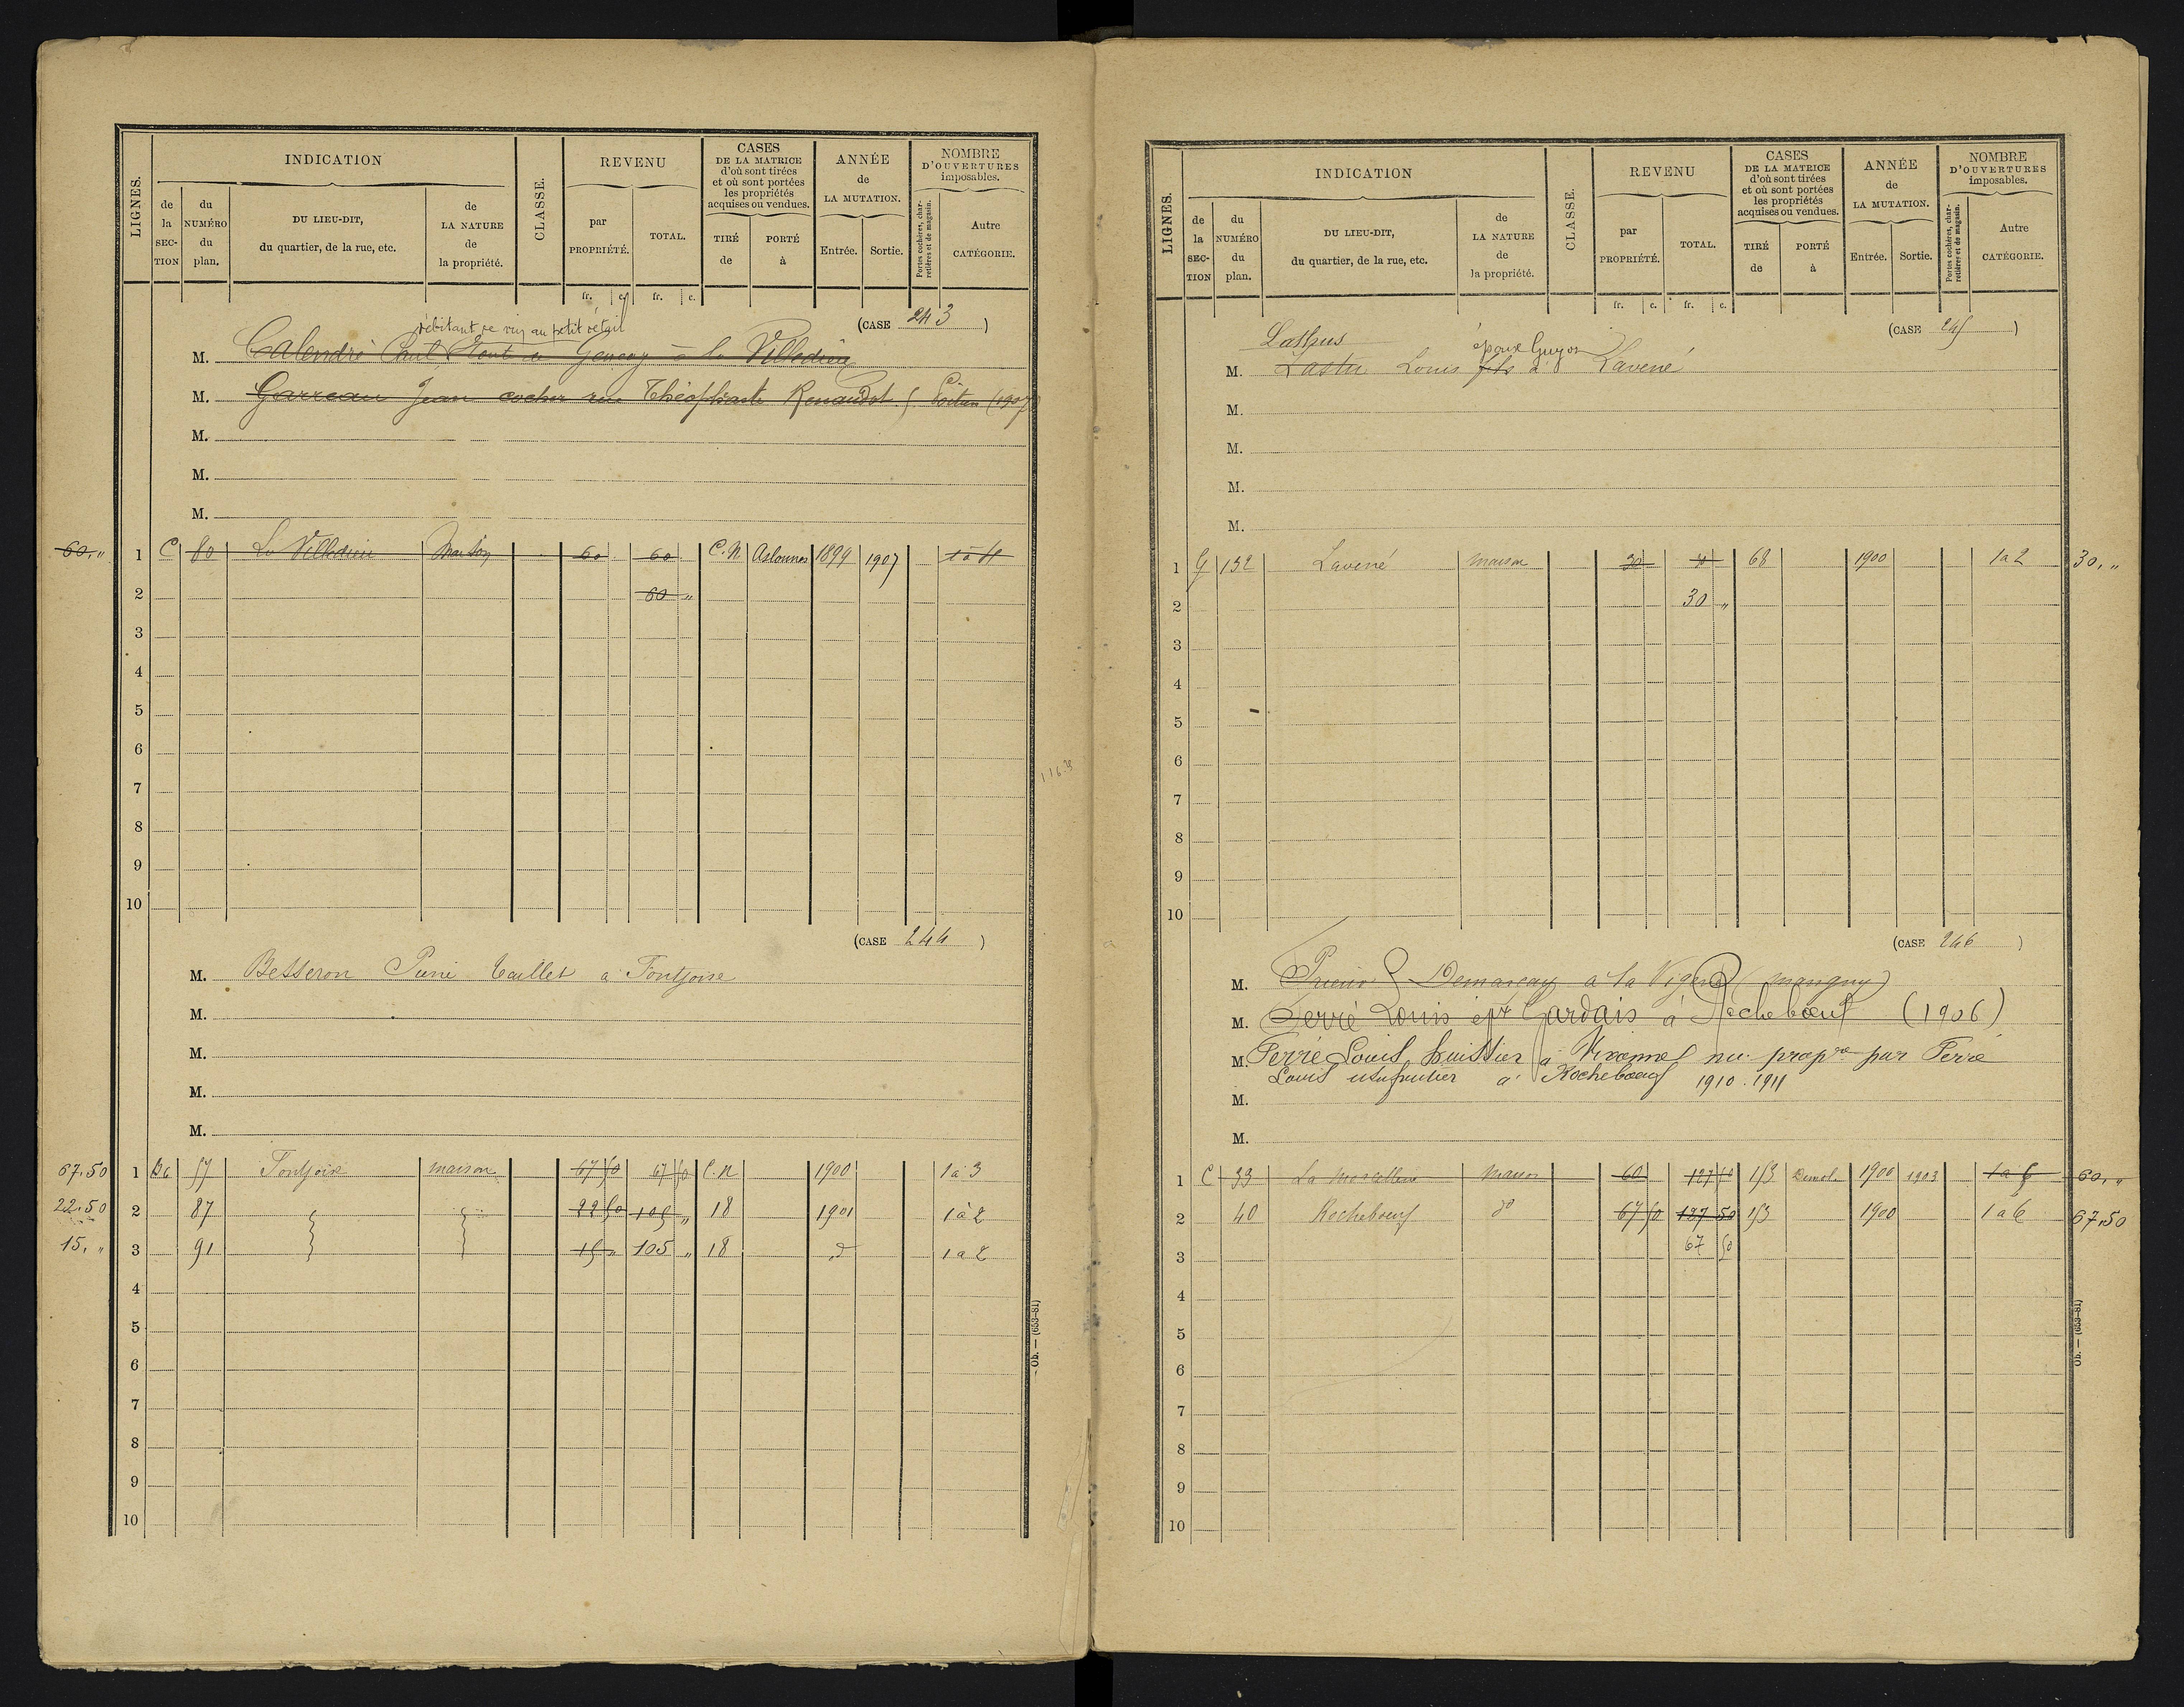 LIGNES.
INDICATION
de la SECTION
du NUMÉRO du plan.
DU LIEU-DIT, du quartier, de la rue, etc.
de LA NATURE de la propriété.
CLASSE.
REVENU
par PROPRIÉTÉ.
TOTAL.
CASES DE LA MATRICE d'où sont tirées et où sont portées les propriétés acquises ou vendues.
TIRÉ de
PORTÉ à
ANNÉE de LA MUTATION.
Entrée.
Sortie.
NOMBRE D'OUVERTURES imposables.
Portes cochères, charretières et de magasin.
Autre CATÉGORIE.
fr. c. fr. c.
(CASE 243)
débitant de vin au petit détail
M. Calendré Paul à la Villedieu
M. Garreau Jean cocher rue Théophraste Renaudot (1907
M.
M.
M.
60. " 1 C 80 La Villedieu Maison 60 60 C.N. Aslonnes 1899 1907 1 à 4
2 60 "
3
4
5
6
7
8
9
10
(CASE 244)
M. Besseron à Fontjoise
M.
M.
M.
M.
67.50 1 57 Fontjoise maison 67 50 67 50 C.N 1900 1 à 3
22.50 2 87 22 50 105 " 18 1901 1 à 2
15. " 3 91 15 " 105 " 18 d 1 a 2
4
5
6
7
8
9
10
Ob. — (653-81)
LIGNES.
INDICATION
de la SECTION
du NUMÉRO du plan.
DU LIEU-DIT, du quartier, de la rue, etc.
de LA NATURE de la propriété.
CLASSE.
REVENU
par PROPRIÉTÉ.
TOTAL.
CASES DE LA MATRICE d'où sont tirées et où sont portées les propriétés acquises ou vendues.
TIRÉ de
PORTÉ à
ANNÉE de LA MUTATION.
Entrée.
Sortie.
NOMBRE D'OUVERTURES imposables.
Portes cochères, charretières et de magasin.
Autre CATÉGORIE.
fr. c. fr. c.
(CASE 245)
Lathus époux Guyon
M. Lastu Louis fils à Lavené
M.
M.
M.
M.
1 G 132 Lavené maison 30 30 68 1900 1 a 2 30. "
2 30 "
3
4
5
6
7
8
9
10
(CASE 246)
M. Demarcay à la Vigerie
M. Ferré Louis epx Gardais à Rochebœuf (1906)
M. Ferré Louis huissier à Vivonne nu propre par Ferré
Louis usufruitier à Rochebœuf 1910.1911
M.
M.
1 C 33 maison 60 127 50 153 Demol. 1900 1903 60. "
2 40 Rochebœuf do 67 50 127 50 153 1900 1 a 6 67.50
3 67 50
4
5
6
7
8
9
10
Ob. — (653-81)